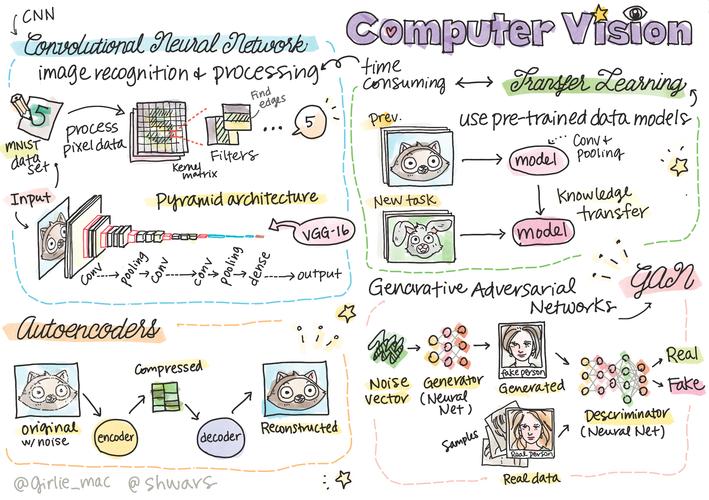 Computer Vision
CNN
Convolutional Neural Network
image recognition & processing
5
MNIST
data
set
process
pixel data
Kernel
matrix
Filters
Find
edges
...
5
Input
Pyramid architecture
VGG-16
conv
pooling
conv
conv
pooling
dense
output
time
consuming
Transfer Learning
use pre-trained data models
Prev.
model
Conv+
pooling
Knowledge
transfer
New task
model
Autoencoders
original
w/ noise
encoder
Compressed
decoder
Reconstructed
Generative Adversarial
Networks
GAN
Noise
vector
Generator
(Neural
Net)
fake person
Generated
Samples
Real person
Real data
Discriminator
(Neural Net)
Real
Fake
@girlie_mac @shwars